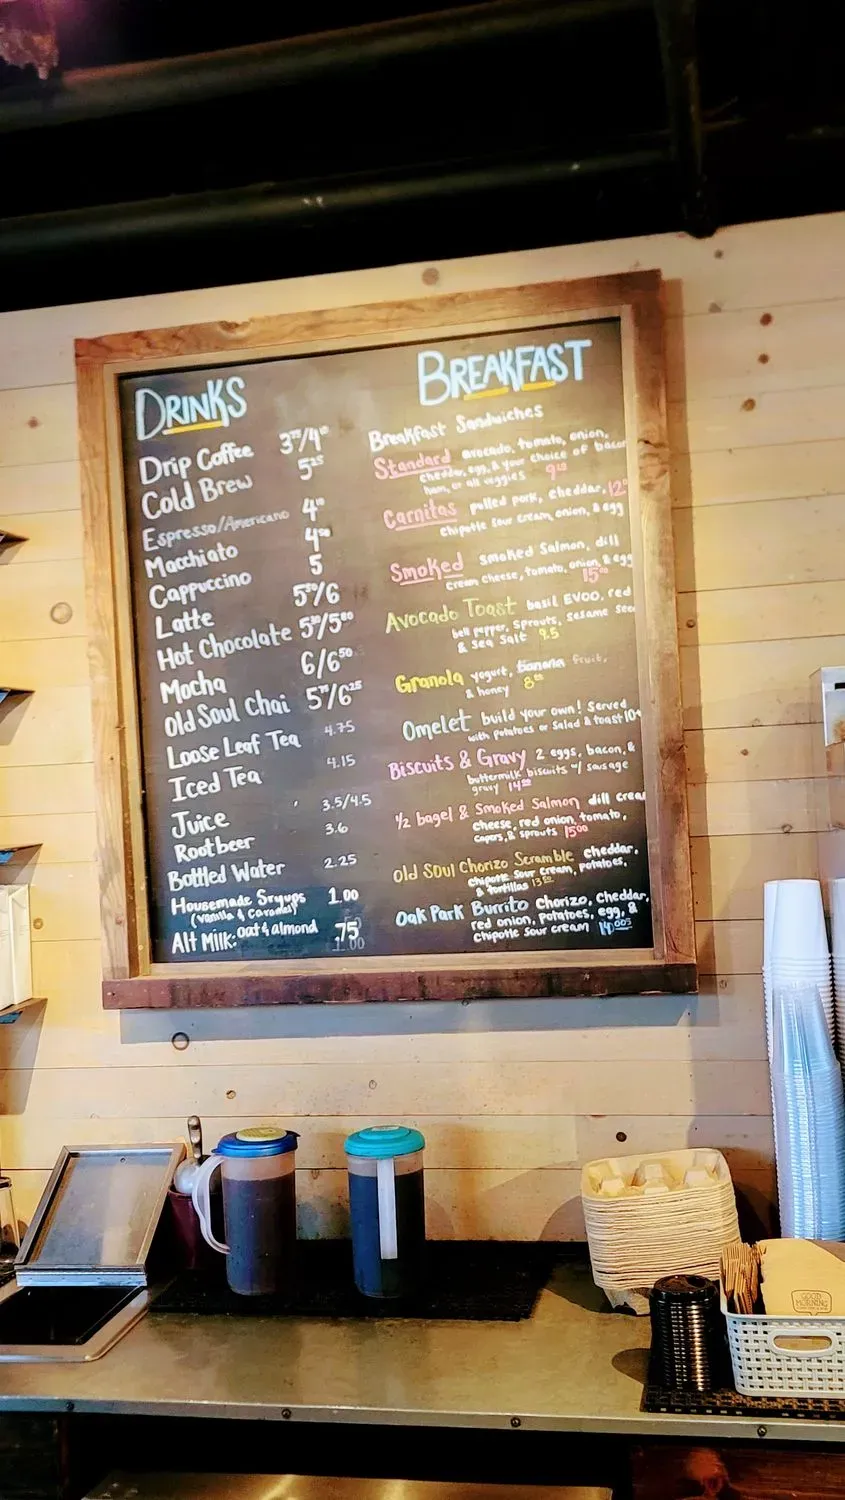 DRINKS
Drip Coffee 3⁷⁵/4⁰⁰
Cold Brew 5²⁵
Espresso/Americano 4⁰⁰
Macchiato 4⁵⁰
Cappuccino 5
Latte 5⁵⁰/6
Hot Chocolate 5³⁰/5⁸⁰
Mocha 6/6⁵⁰
Old Soul Chai 5⁷⁵/6²⁵
Loose Leaf Tea 4.75
Iced Tea 4.15
Juice 3.5/4.5
Rootbeer 3.6
Bottled Water 2.25
Housemade Sryups 1.00
(vanilla & Caramel)
Alt Milk: oat & almond .75
1.00
BREAKFAST
Breakfast Sandwiches
Standard avocado, tomato, onion,
cheddar, egg, & your choice of bacon
ham, or all veggies
Carnitas pulled pork, cheddar,
chipotle sour cream, onion, & egg
Smoked smoked Salmon, dill
cream cheese, tomato, onion, & egg
15⁰⁰
Avocado Toast basil EVOO, red
bell pepper, sprouts, sesame see
& Sea Salt 9.5
Granola yogurt, banana fruit,
& honey
Omelet build your own! Served
with potatoes or Salad & toast
Biscuits & Gravy 2 eggs, bacon, &
buttermilk biscuits w/ sausage
gravy
1/2 bagel & Smoked Salmon dill crea
cheese, red onion, tomato,
capers, & sprouts 15⁰⁰
Old Soul Chorizo Scramble cheddar,
chipotle sour cream, potatoes,
& tortillas
Oak Park Burrito chorizo, cheddar,
red onion, potatoes, egg, &
chipotle sour cream
GOOD
MORNING